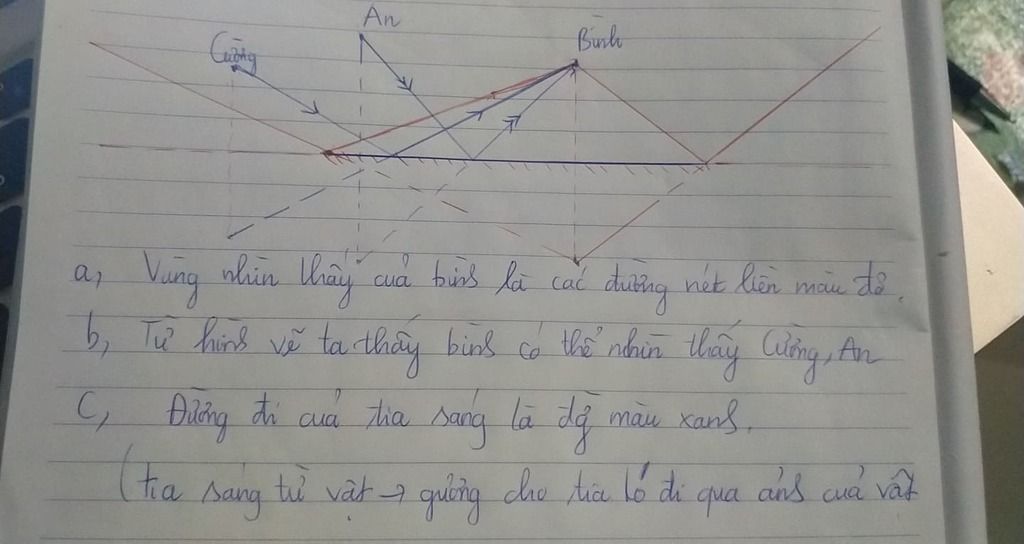 An
Cường
Bình
a, Vùng nhìn thấy của bình là các đường nét liền màu đỏ.
b, Từ hình vẽ ta thấy bình có thể nhìn thấy Cường, An
C, Đường đi của tia sáng là dg̃ màu xanh.
(tia sáng từ vật → gương cho tia ló đi qua ảnh của vật